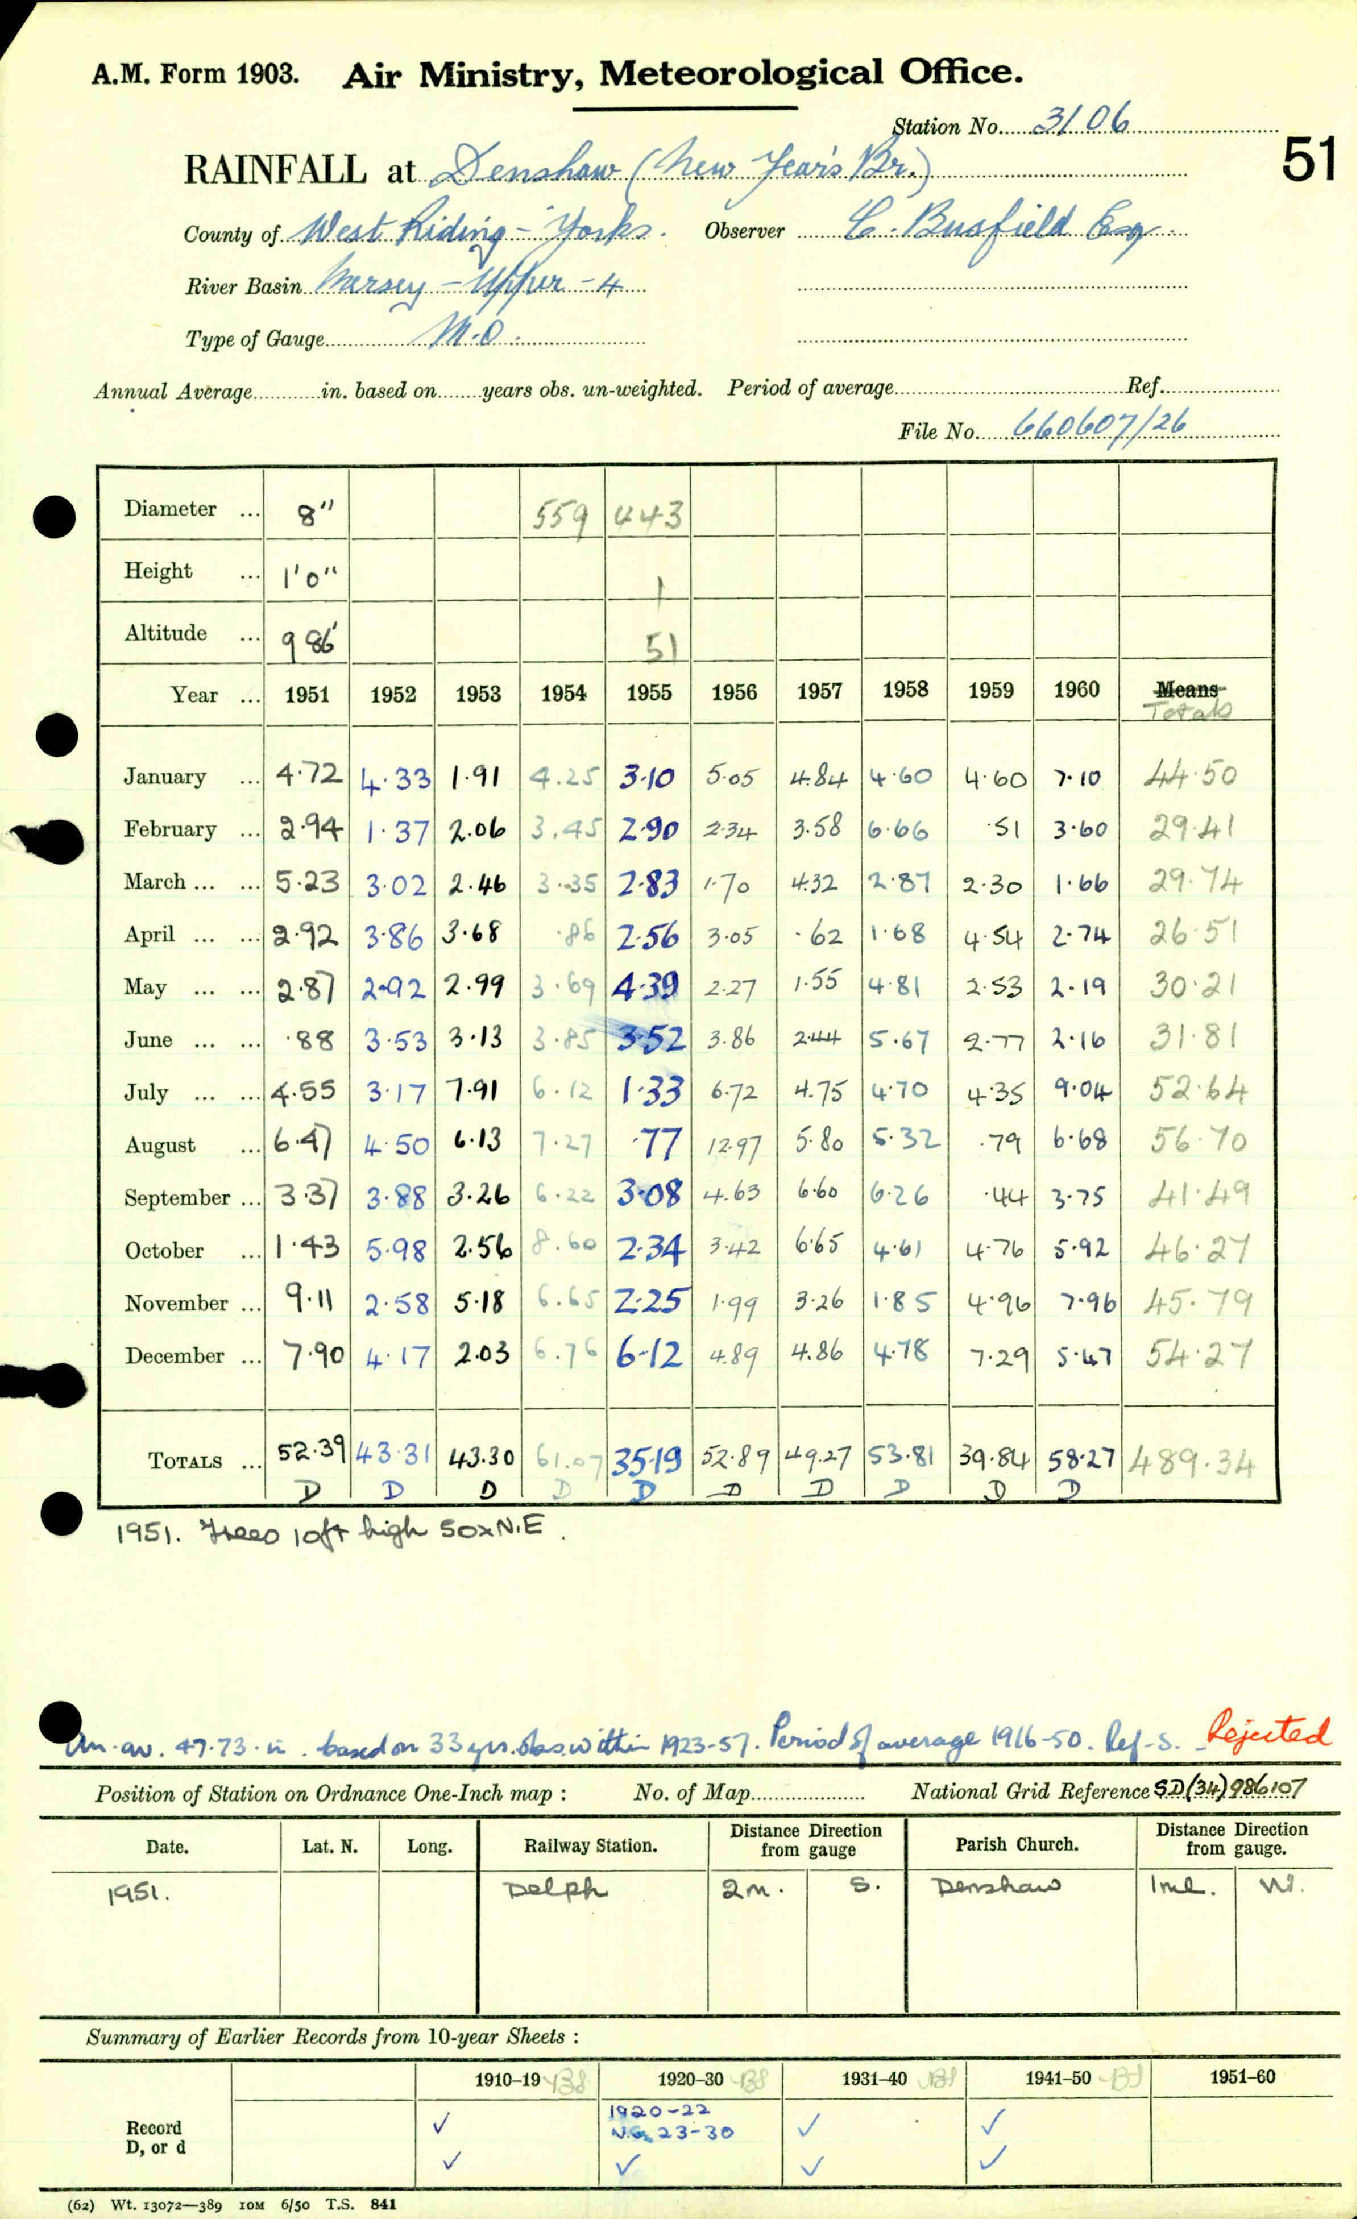 A.M. Form 1903. Air Ministry, Meteorological Office.
Station No. 3106
51
RAINFALL at Denshaw (New Year's Br.)
County of West Riding - Yorks. Observer C. Busfield Esq
River Basin Mersey - Upper - 4
Type of Gauge M.O.
Annual Average in. based on years obs. un-weighted. Period of average Ref.
File No. 660607/26
Diameter ... 8" 559 443
Height ... 1'0" 1
Altitude ... 986' 51
Year ... 1951 1952 1953 1954 1955 1956 1957 1958 1959 1960 Means
Totals
January ... 4.72 4.33 1.91 4.25 3.10 5.05 4.84 4.60 4.60 7.10 44.50
February ... 2.94 1.37 2.06 3.45 2.90 2.34 3.58 6.66 .51 3.60 29.41
March ... ... 5.23 3.02 2.46 3.35 2.83 1.70 4.32 2.87 2.30 1.66 29.74
April ... ... 2.92 3.86 3.68 .86 2.56 3.05 .62 1.68 4.54 2.74 26.51
May ... ... 2.87 2.92 2.99 3.69 4.39 2.27 1.55 4.81 2.53 2.19 30.21
June ... ... .88 3.53 3.13 3.85 3.52 3.86 2.44 5.67 2.77 2.16 31.81
July ... ... 4.55 3.17 7.91 6.12 1.33 6.72 4.75 4.70 4.35 9.04 52.64
August ... 6.47 4.50 6.13 7.27 .77 12.97 5.80 5.32 .79 6.68 56.70
September ... 3.37 3.88 3.26 6.22 3.08 4.63 6.60 6.26 .44 3.75 41.49
October ... 1.43 5.98 2.56 8.60 2.34 3.42 6.65 4.61 4.76 5.92 46.27
November ... 9.11 2.58 5.18 6.65 2.25 1.99 3.26 1.85 4.96 7.96 45.79
December ... 7.90 4.17 2.03 6.76 6.12 4.89 4.86 4.78 7.29 5.47 54.27
TOTALS ... 52.39 43.31 43.30 61.07 35.19 52.89 49.27 53.81 39.84 58.27 489.34
D D D D D D D D D D
1951. Trees 10ft high 50x N.E.
An. av. 47.73 in. based on 33 yrs. obs. within 1923-57. Period of average 1916-50. Ref-S. - Rejected
Position of Station on Ordnance One-Inch map : No. of Map National Grid Reference SD(34)986107
Date. Lat. N. Long. Railway Station. Distance Direction from gauge Parish Church. Distance Direction from gauge.
1951. Delph 2m. S. Denshaw 1ml. W.
Summary of Earlier Records from 10-year Sheets :
1910-19 1920-30 1931-40 1941-50 1951-60
Record ✓ 1920-22 ✓ ✓
23-30
D, or d ✓ ✓ ✓ ✓
(62) Wt. 13072—389 10M 6/50 T.S. 841